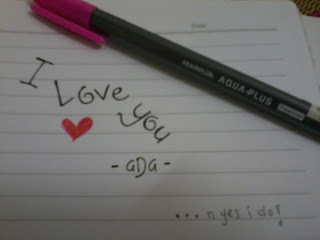 Date:
MARKUS AQUA-PLUS
I
Love
you
- aDa -
... n yes i do!